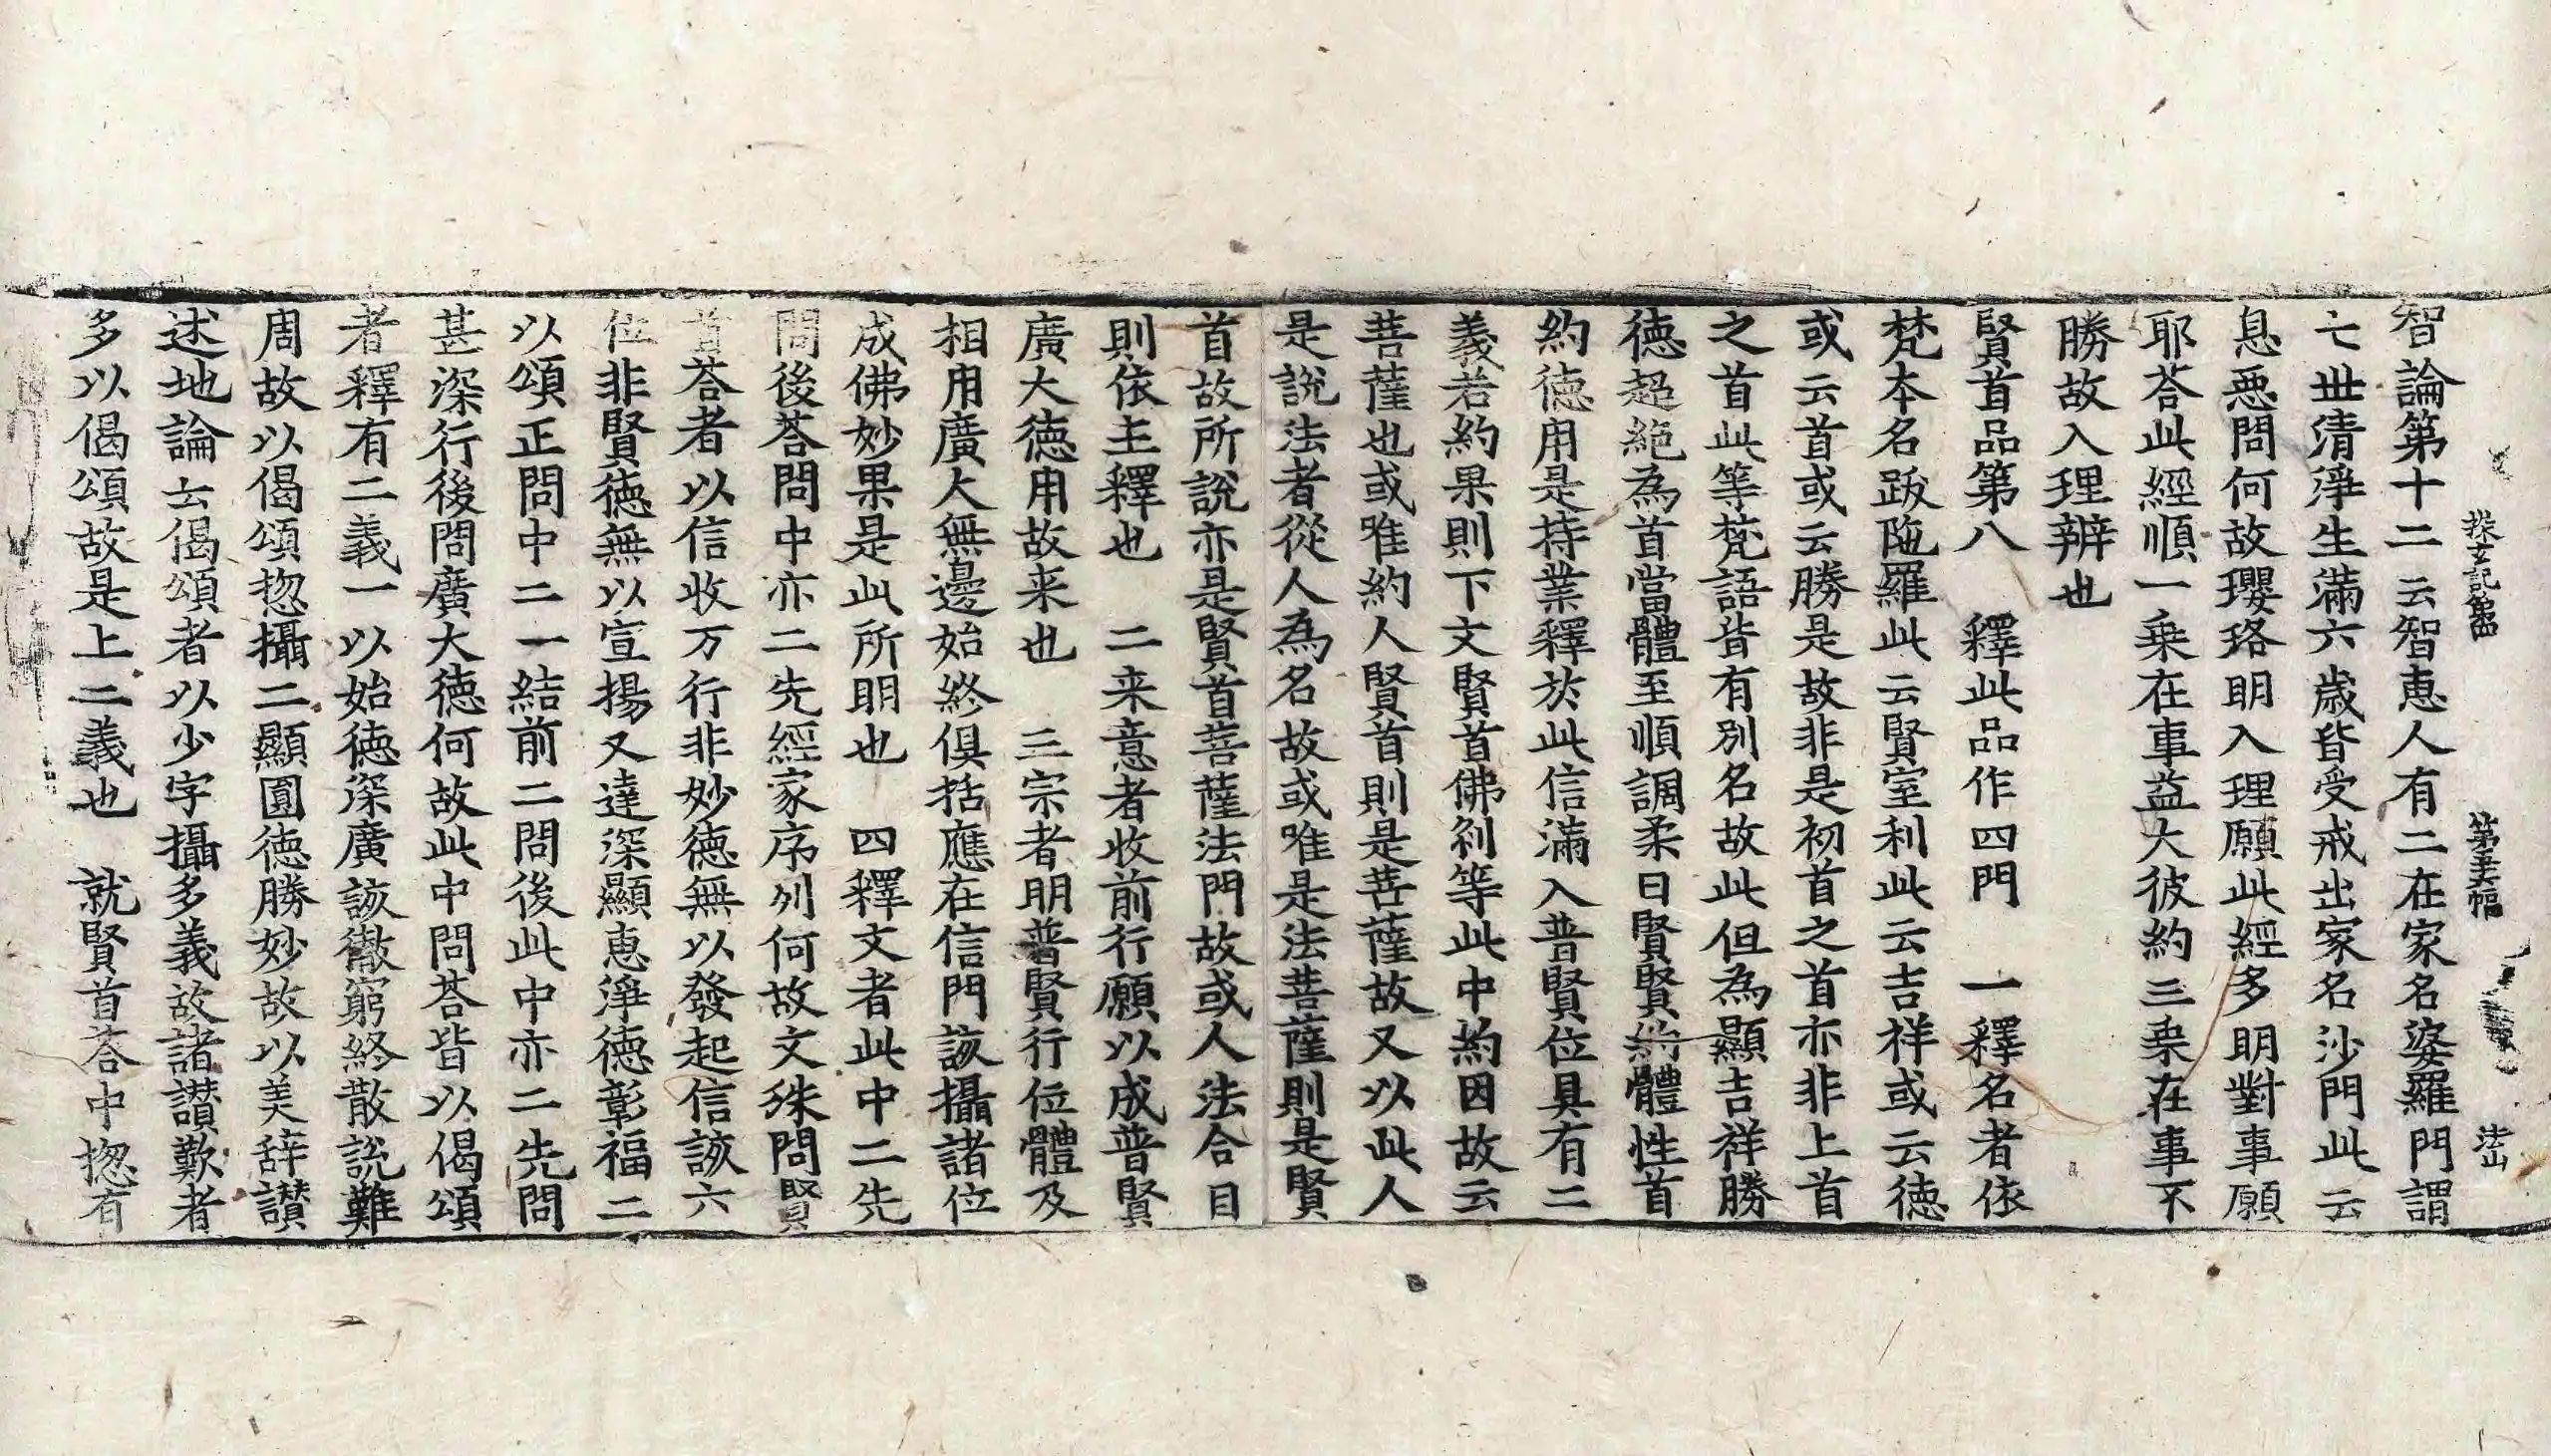 探玄記第四 第五幅 
智論第十二云智恵人有二在家名婆羅門謂
七丗清淨生滿六歲皆受戒出家名沙門此云
息惡問何故瓔珞明入理願此經多明對事願
耶荅此經順一乗在事益大彼約三乗在事不
勝故入理辨也
賢首品第八 釋此品作四門 一釋名者依
梵本名跋陁羅此云賢室利此云吉祥或云德
或云首或云勝是故非是初首之首亦非上首
之首此等梵語皆有別名故此但為顯吉祥勝
德超絶為首當體至順調柔曰賢賢約體性首
約德用是持業釋於此信滿入普賢位具有二
義若約果則下文賢首佛刹等此中約因故云
菩薩也或唯約人賢首則是菩薩故又以此人
是說法者從人為名故或唯是法菩薩則是賢
首故所說亦是賢首菩薩法門故或人法合目
則依主釋也 二来意者收前行願以成普賢
廣大德用故来也 三宗者明普賢行位體及
相用廣大無邊始終俱括應在信門該攝諸位
成佛妙果是此所明也 四釋文者此中二先
問後荅問中亦二先經家序列何故文殊問賢
首荅者以信收万行非妙德無以發起信該六
位非賢德無以宣揚又達深顯恵淨德彰福二
以頌正問中二一結前二問後此中亦二先問
甚深行後問廣大德何故此中問荅皆以偈頌
者釋有二義一以始德深廣該徹窮終散說難
周故以偈頌揔攝二顯圓德勝妙故以美辞讃
述地論云偈頌者以少字攝多義故諸讃歎者
多以偈頌故是上二義也 就賢首荅中揔有